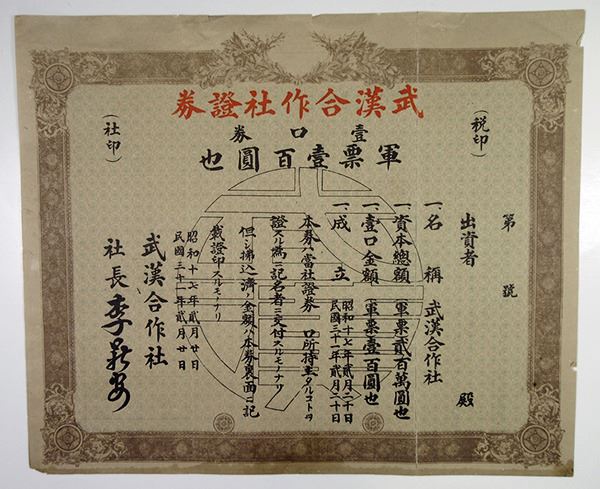 武漢合作社證券
壹口券
軍票壹百圓也
(税印)
(社印)
第 號
出資者 殿
一、名稱 武漢合作社
一、資本總額 軍票貳百萬圓也
一、壹口金額 軍票壹百圓也
一、成立 昭和十七年貳月二十日
民國三十一年貳月二十日
本券ハ當社證券 口所持主タルコトヲ
證スル爲ニ記名者ニ交付スルモノナリ
但シ拂込濟ノ金額ハ本券裏面ニ記
載證印スルモノナリ
昭和十七年貳月廿日
民國三十一年貳月廿日
武漢合作社
社長 李